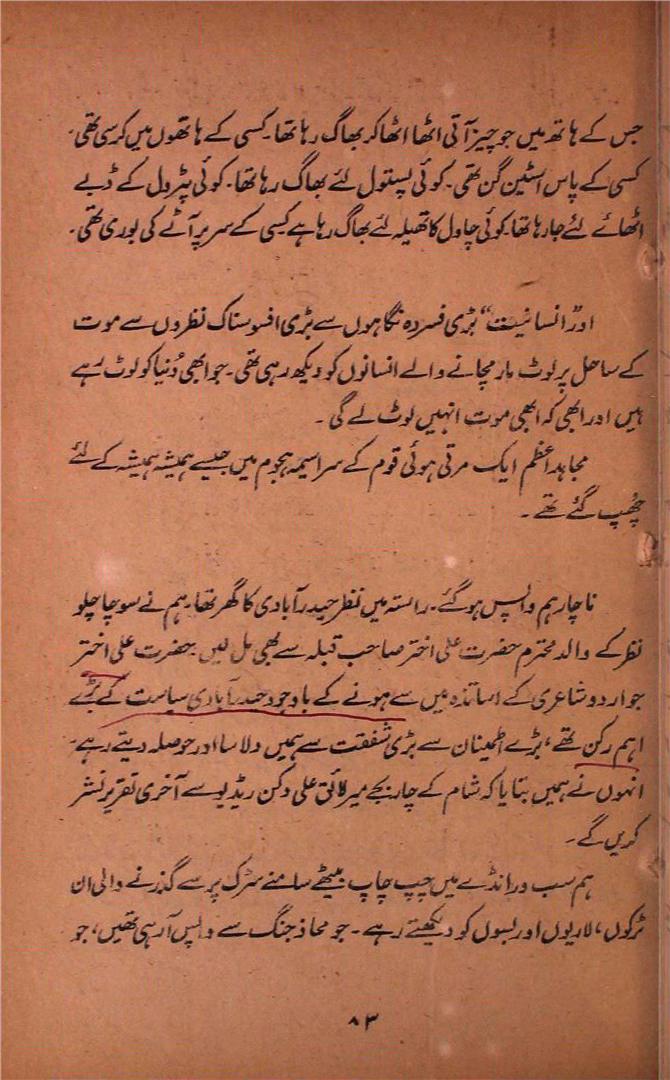 جس کے ہاتھ میں جو چیز آتی اٹھا اٹھا کر بھاگ رہا تھا۔ کسی کے ہاتھوں میں کرسی تھی۔
کسی کے پاس اسٹین گن تھی۔ کوئی پستول لئے بھاگ رہا تھا۔ کوئی پٹرول کے ڈبے
اٹھائے لئے جا رہا تھا۔ کوئی چاول کا تھیلہ لئے بھاگ رہا ہے کسی کے سر پر آٹے کی بوری تھی۔
اور "انسانیت" بڑی فسردہ نگاہوں سے بڑی افسوسناک نظروں سے موت
کے ساحل پر لوٹ مار مچانے والے انسانوں کو دیکھ رہی تھی۔ جو ابھی دُنیا کو لوٹ رہے
ہیں اور ابھی کہ ابھی موت انہیں لوٹ لے گی۔
مجاہد اعظم ایک مرتی ہوئی قوم کے سراسیمہ ہجوم میں جیسے ہمیشہ ہمیشہ کے لئے
چُھپ گئے تھے۔
ناچار ہم واپس ہو گئے۔ راستہ میں نظر حیدرآبادی کا گھر تھا۔ ہم نے سوچا چلو
نظر کے والد محترم حضرت علی اختر صاحب قبلہ سے بھی مل لیں۔ حضرت علی اختر
جو اردو شاعری کے اساتذہ میں سے ہونے کے باوجود حیدرآبادی سیاست کے بڑے
اہم رکن تھے، بڑے اطمینان سے بڑی شفقت سے ہمیں دلاسا اور حوصلہ دیتے رہے۔
انہوں نے ہمیں بتایا کہ شام کے چار بجے میر لائق علی دکن ریڈیو سے آخری تقریر نشر
کریں گے۔
ہم سب ورانڈے میں چپ چاپ بیٹھے سامنے سڑک پر سے گذرنے والی ان
ٹرکوں، لاریوں اور بسوں کو دیکھتے رہے۔ جو محاذ جنگ سے واپس آرہی تھیں، جو
۸۳